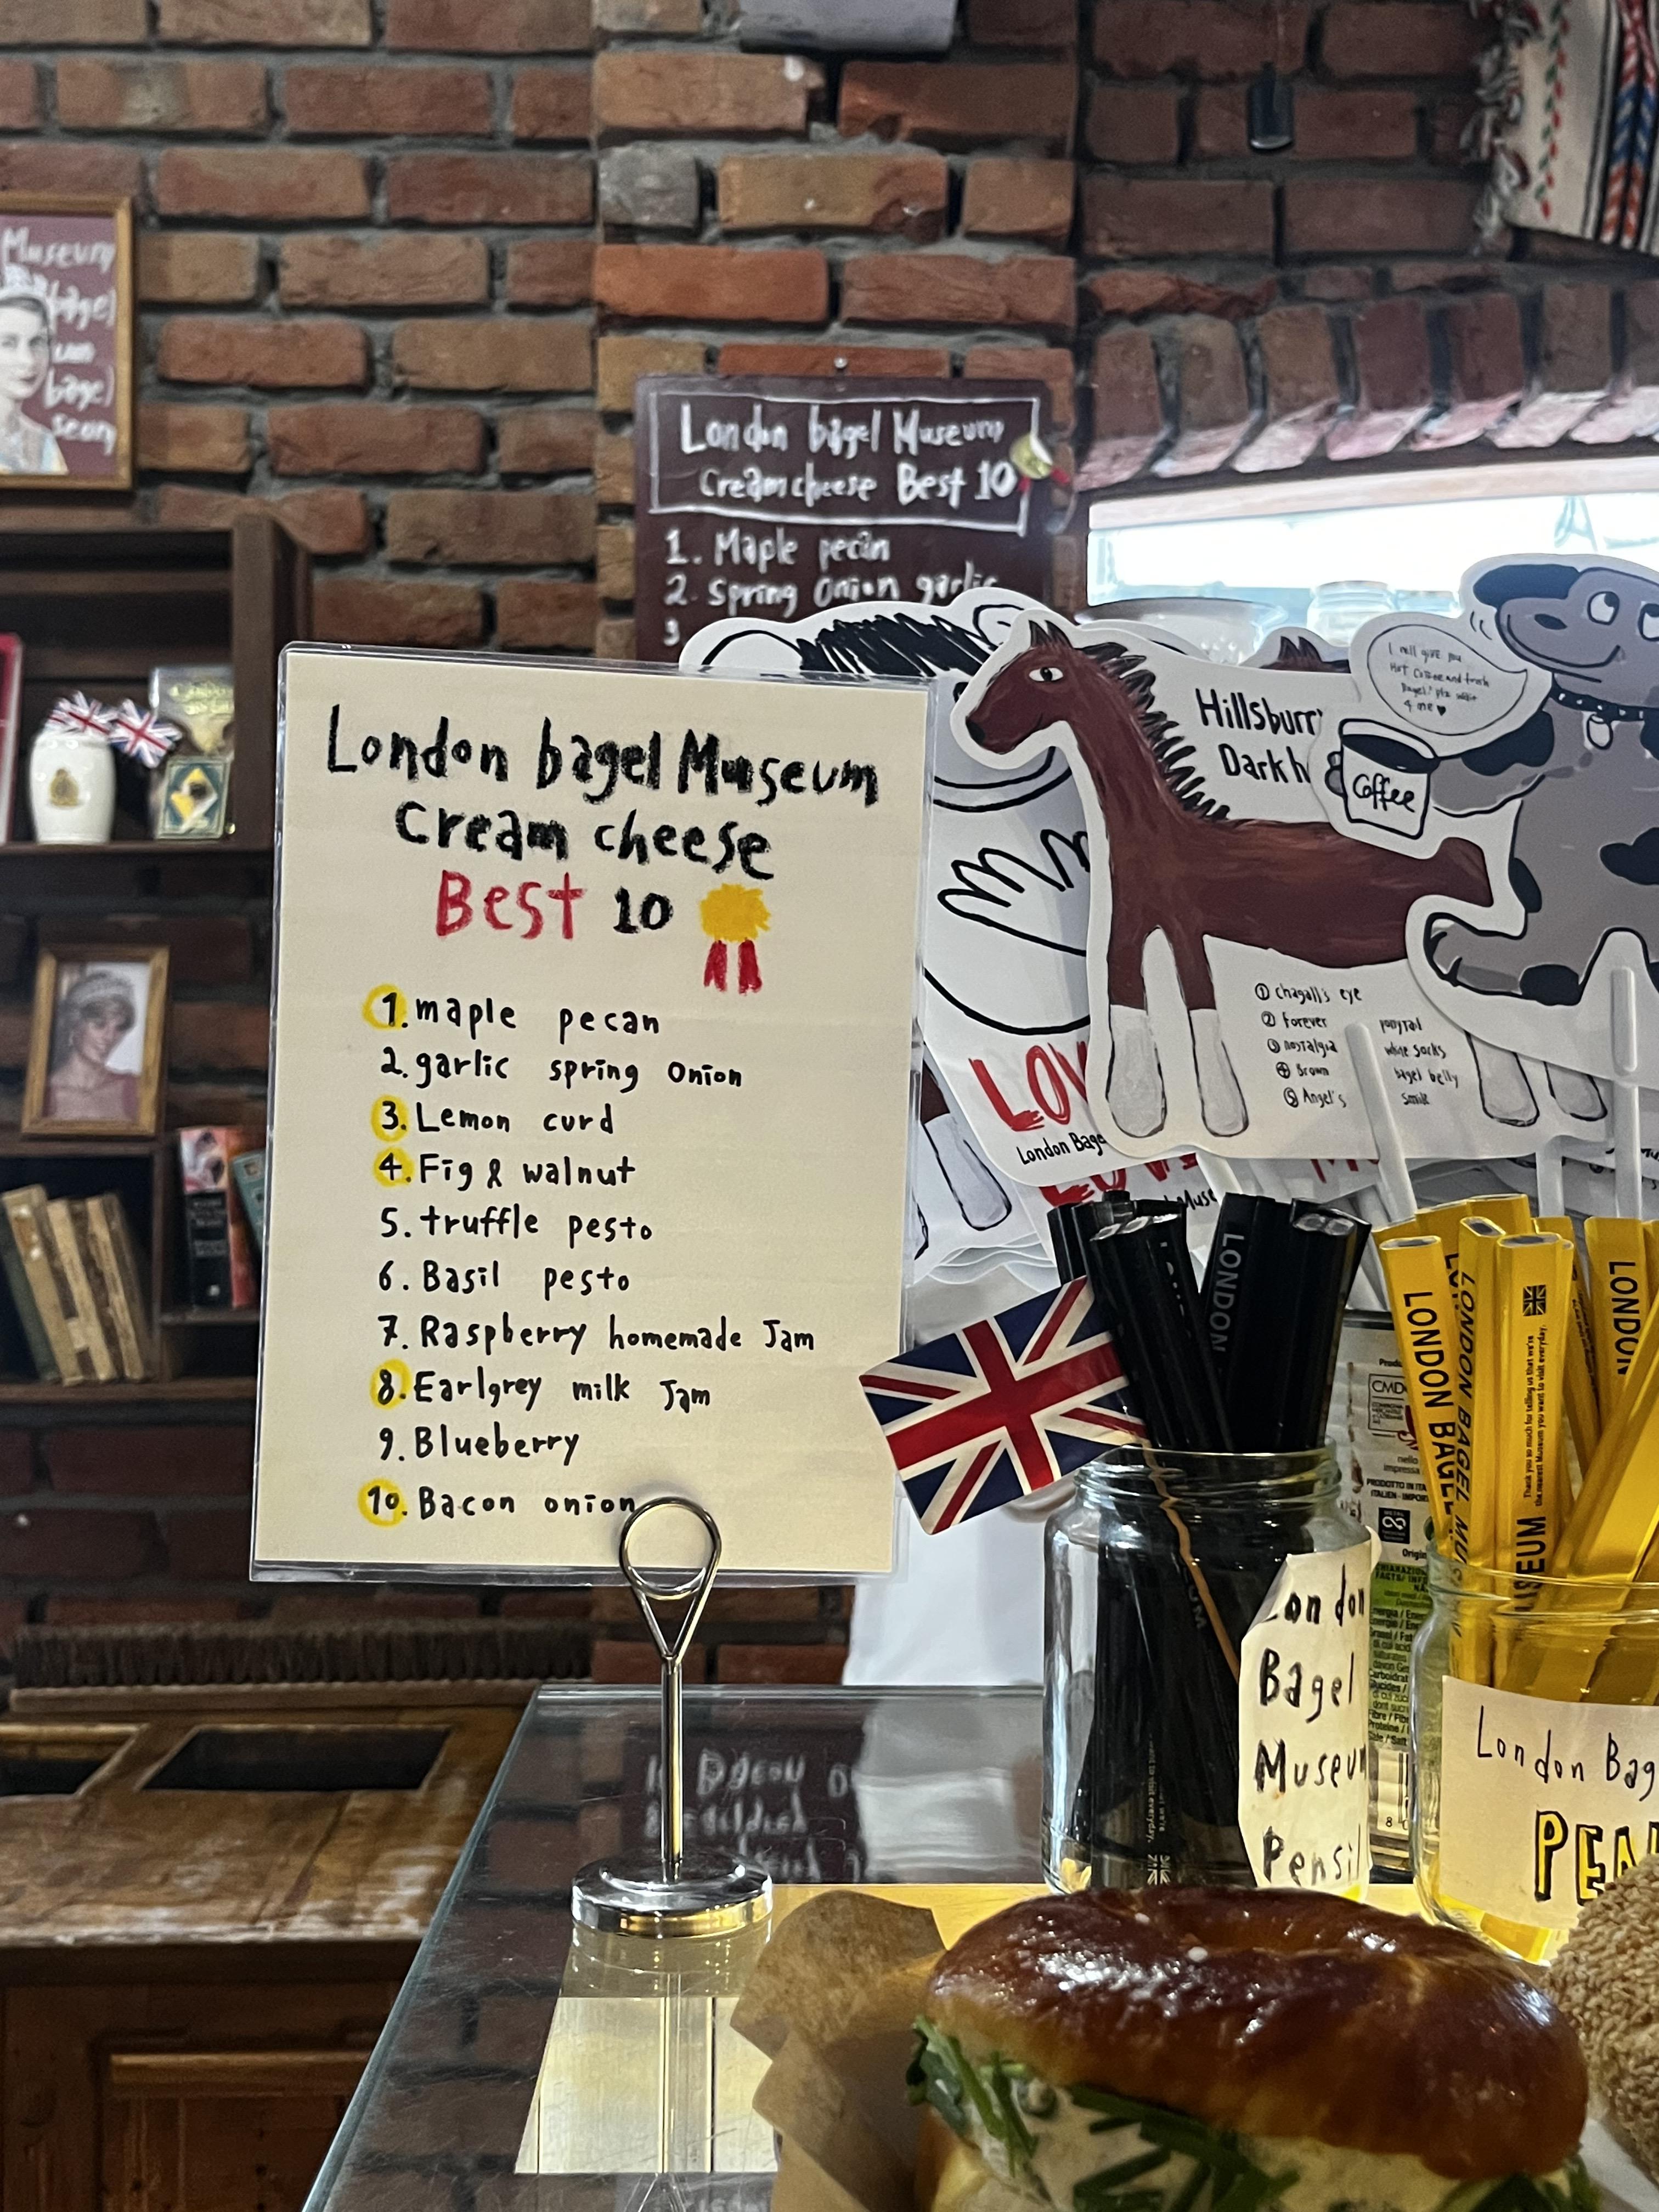 Museum
bagel
bagel
London bagel Museum
Creamcheese Best 10
1. Maple pecan
2. Spring Onion garlic
3
London bagel Museum
Cream cheese
Best 10
1. maple pecan
2. garlic spring onion
3. Lemon curd
4. Fig & walnut
5. truffle pesto
6. Basil pesto
7. Raspberry homemade Jam
8. Earlgrey milk Jam
9. Blueberry
10. Bacon onion
Hillsburry
Dark h
I will give you
Hot Coffee and fresh
Bagel! plz
4 me ♥
Coffee
① chagall's eye
② Forever ponytail
③ nostalgia white socks
④ Brown bagel belly
⑤ Angel's smile
LOV
London Bage
LONDON
LONDON BAGEL
LONDON BAGEL MU
LONDON
USEUM
Thank you so much for telling us that we're
the nearest Museum you want to visit everyday.
London
Bagel
Museum
Pensil
London Bag
PEN